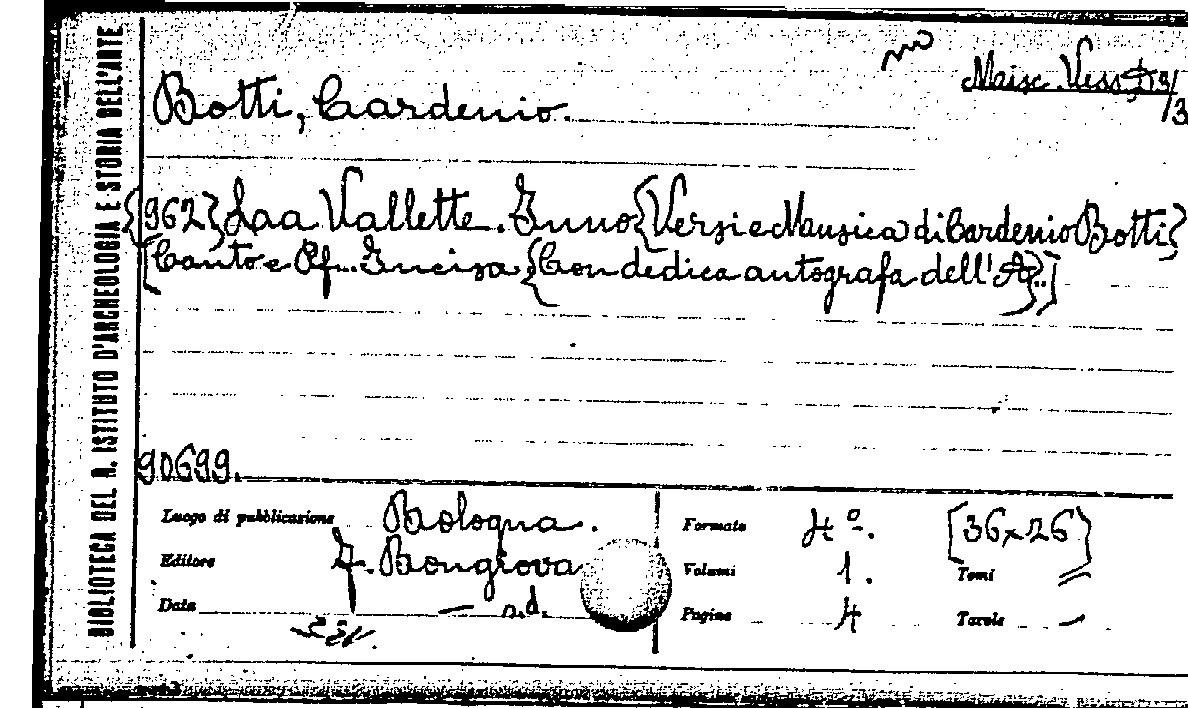 BIBLIOTECA DEL R. ISTITUTO D'ARCHEOLOGIA E STORIA DELL'ARTE
Misc. Vess.
Botti, Cardenio.
{962} Laa Vallette. Inno {Versi e Musica di Cardenio Botti}
[Canto e Pf... Incisa {Con dedica autografa dell'A}..]
90699.
Luogo di pubblicazione Bologna.
Editore F. Bongiova
Data — n.d.
Formato 4º. [36x26}
Volumi 1. Tomi =
Pagine 4 Tavole —